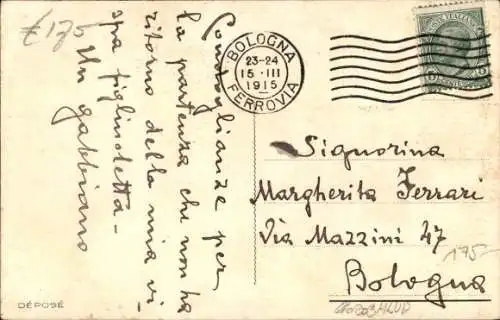 € 175
Condoglianze per
la partenza che non ha
ritorno della mia vi-
spa figlioletta -
Un gabbiano
BOLOGNA
23-24
15 · III
1915
FERROVIA
POSTE ITALIANE
5
Signorina
Margherita Ferrari
Via Mazzini 47
175-
Bologna
DÉPOSÉ